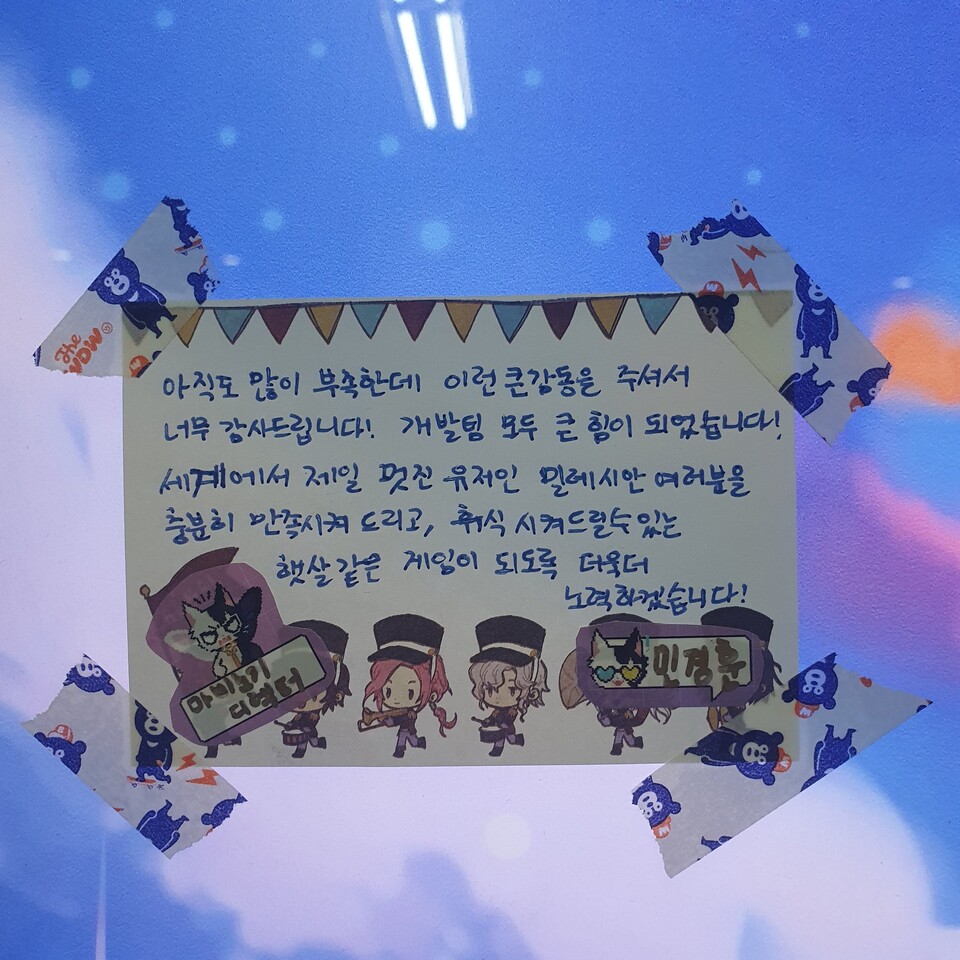 아직도 많이 부족한데 이런 큰감동을 주셔서
너무 감사드립니다! 개발팀 모두 큰 힘이 되었습니다!
세계에서 제일 멋진 유저인 밀레시안 여러분을
충분히 만족시켜 드리고, 휴식 시켜드릴수있는
햇살같은 게임이 되도록 더욱더
노력하겠습니다!
마비노기
디렉터
민경훈
The